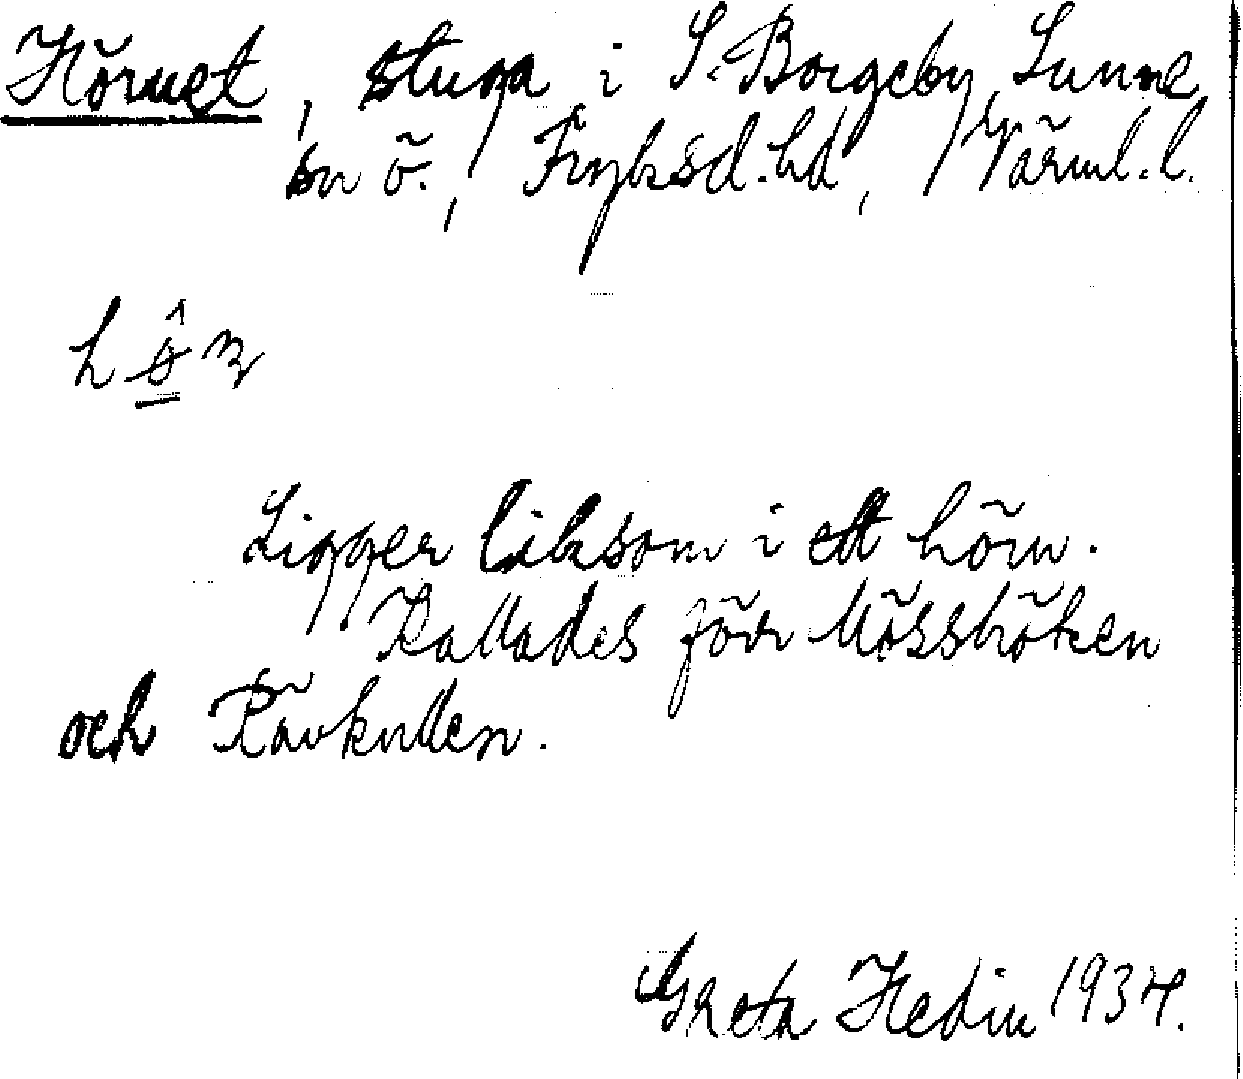 Hörnet, stuga i S. Borgeby, Sunne
sn ö., Fryksd. hd, Värml. l.
Ligger liksom i ett hörn.
Kallades förr Mösshöken
och Rävkullen.
Greta Hedin 1934.